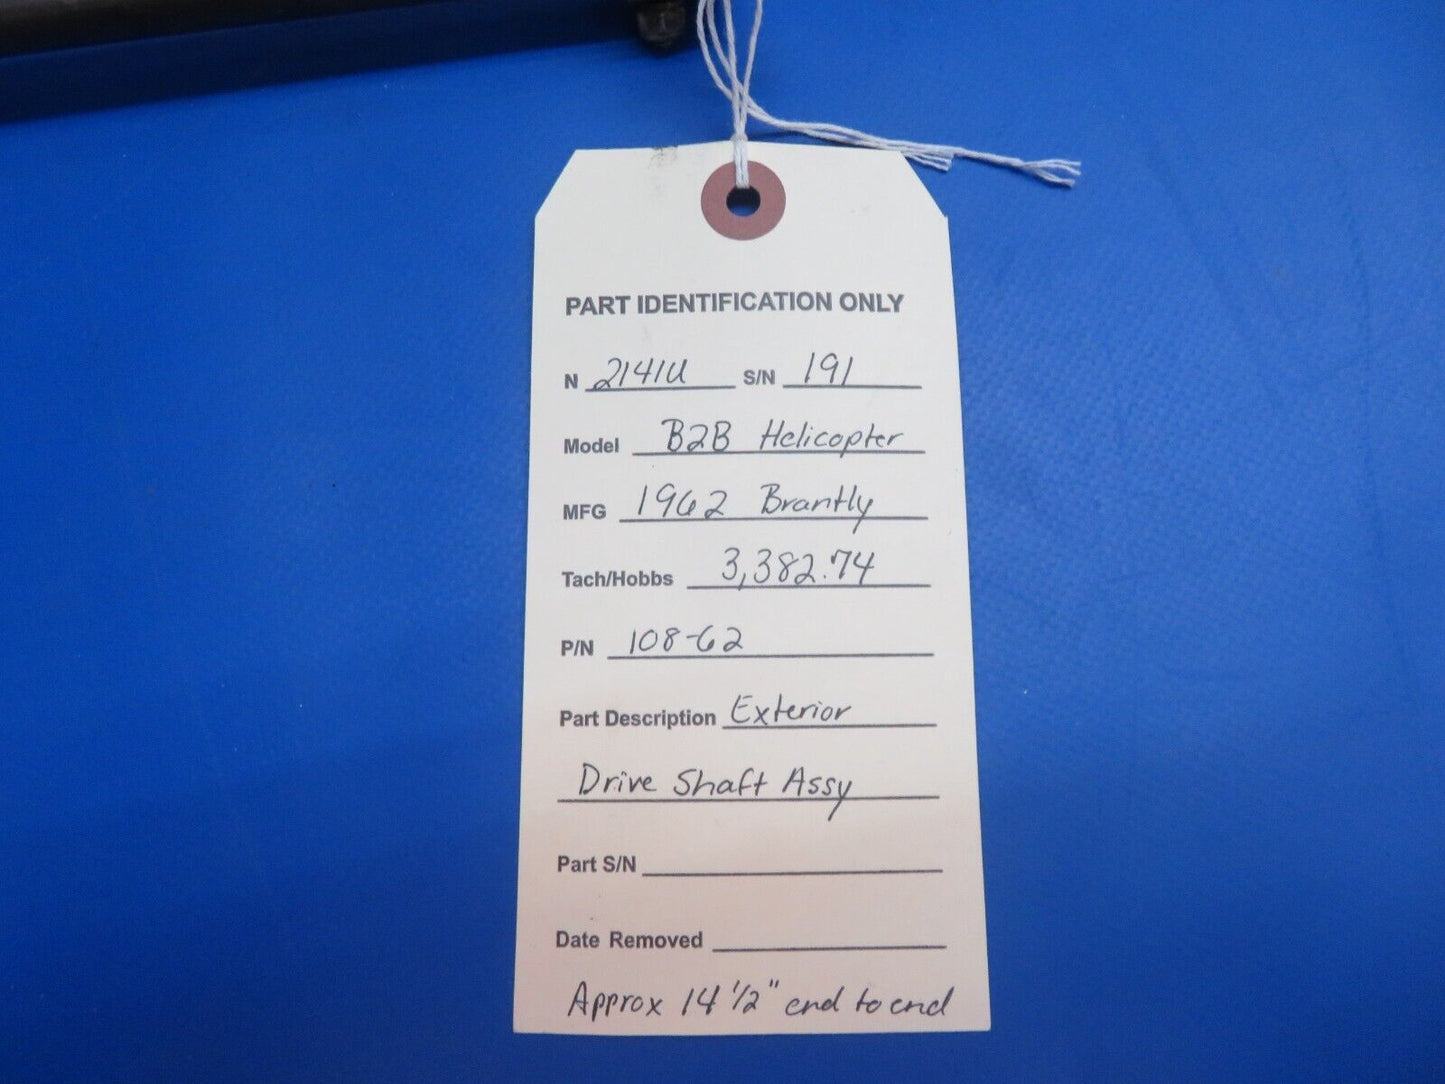 PART IDENTIFICATION ONLY
N 2141U S/N 191
Model B2B Helicopter
MFG 1962 Brantly
Tach/Hobbs 3,382.74
P/N 108-62
Part Description Exterior
Drive Shaft Assy
Part S/N
Date Removed
Approx 14 1/2" end to end